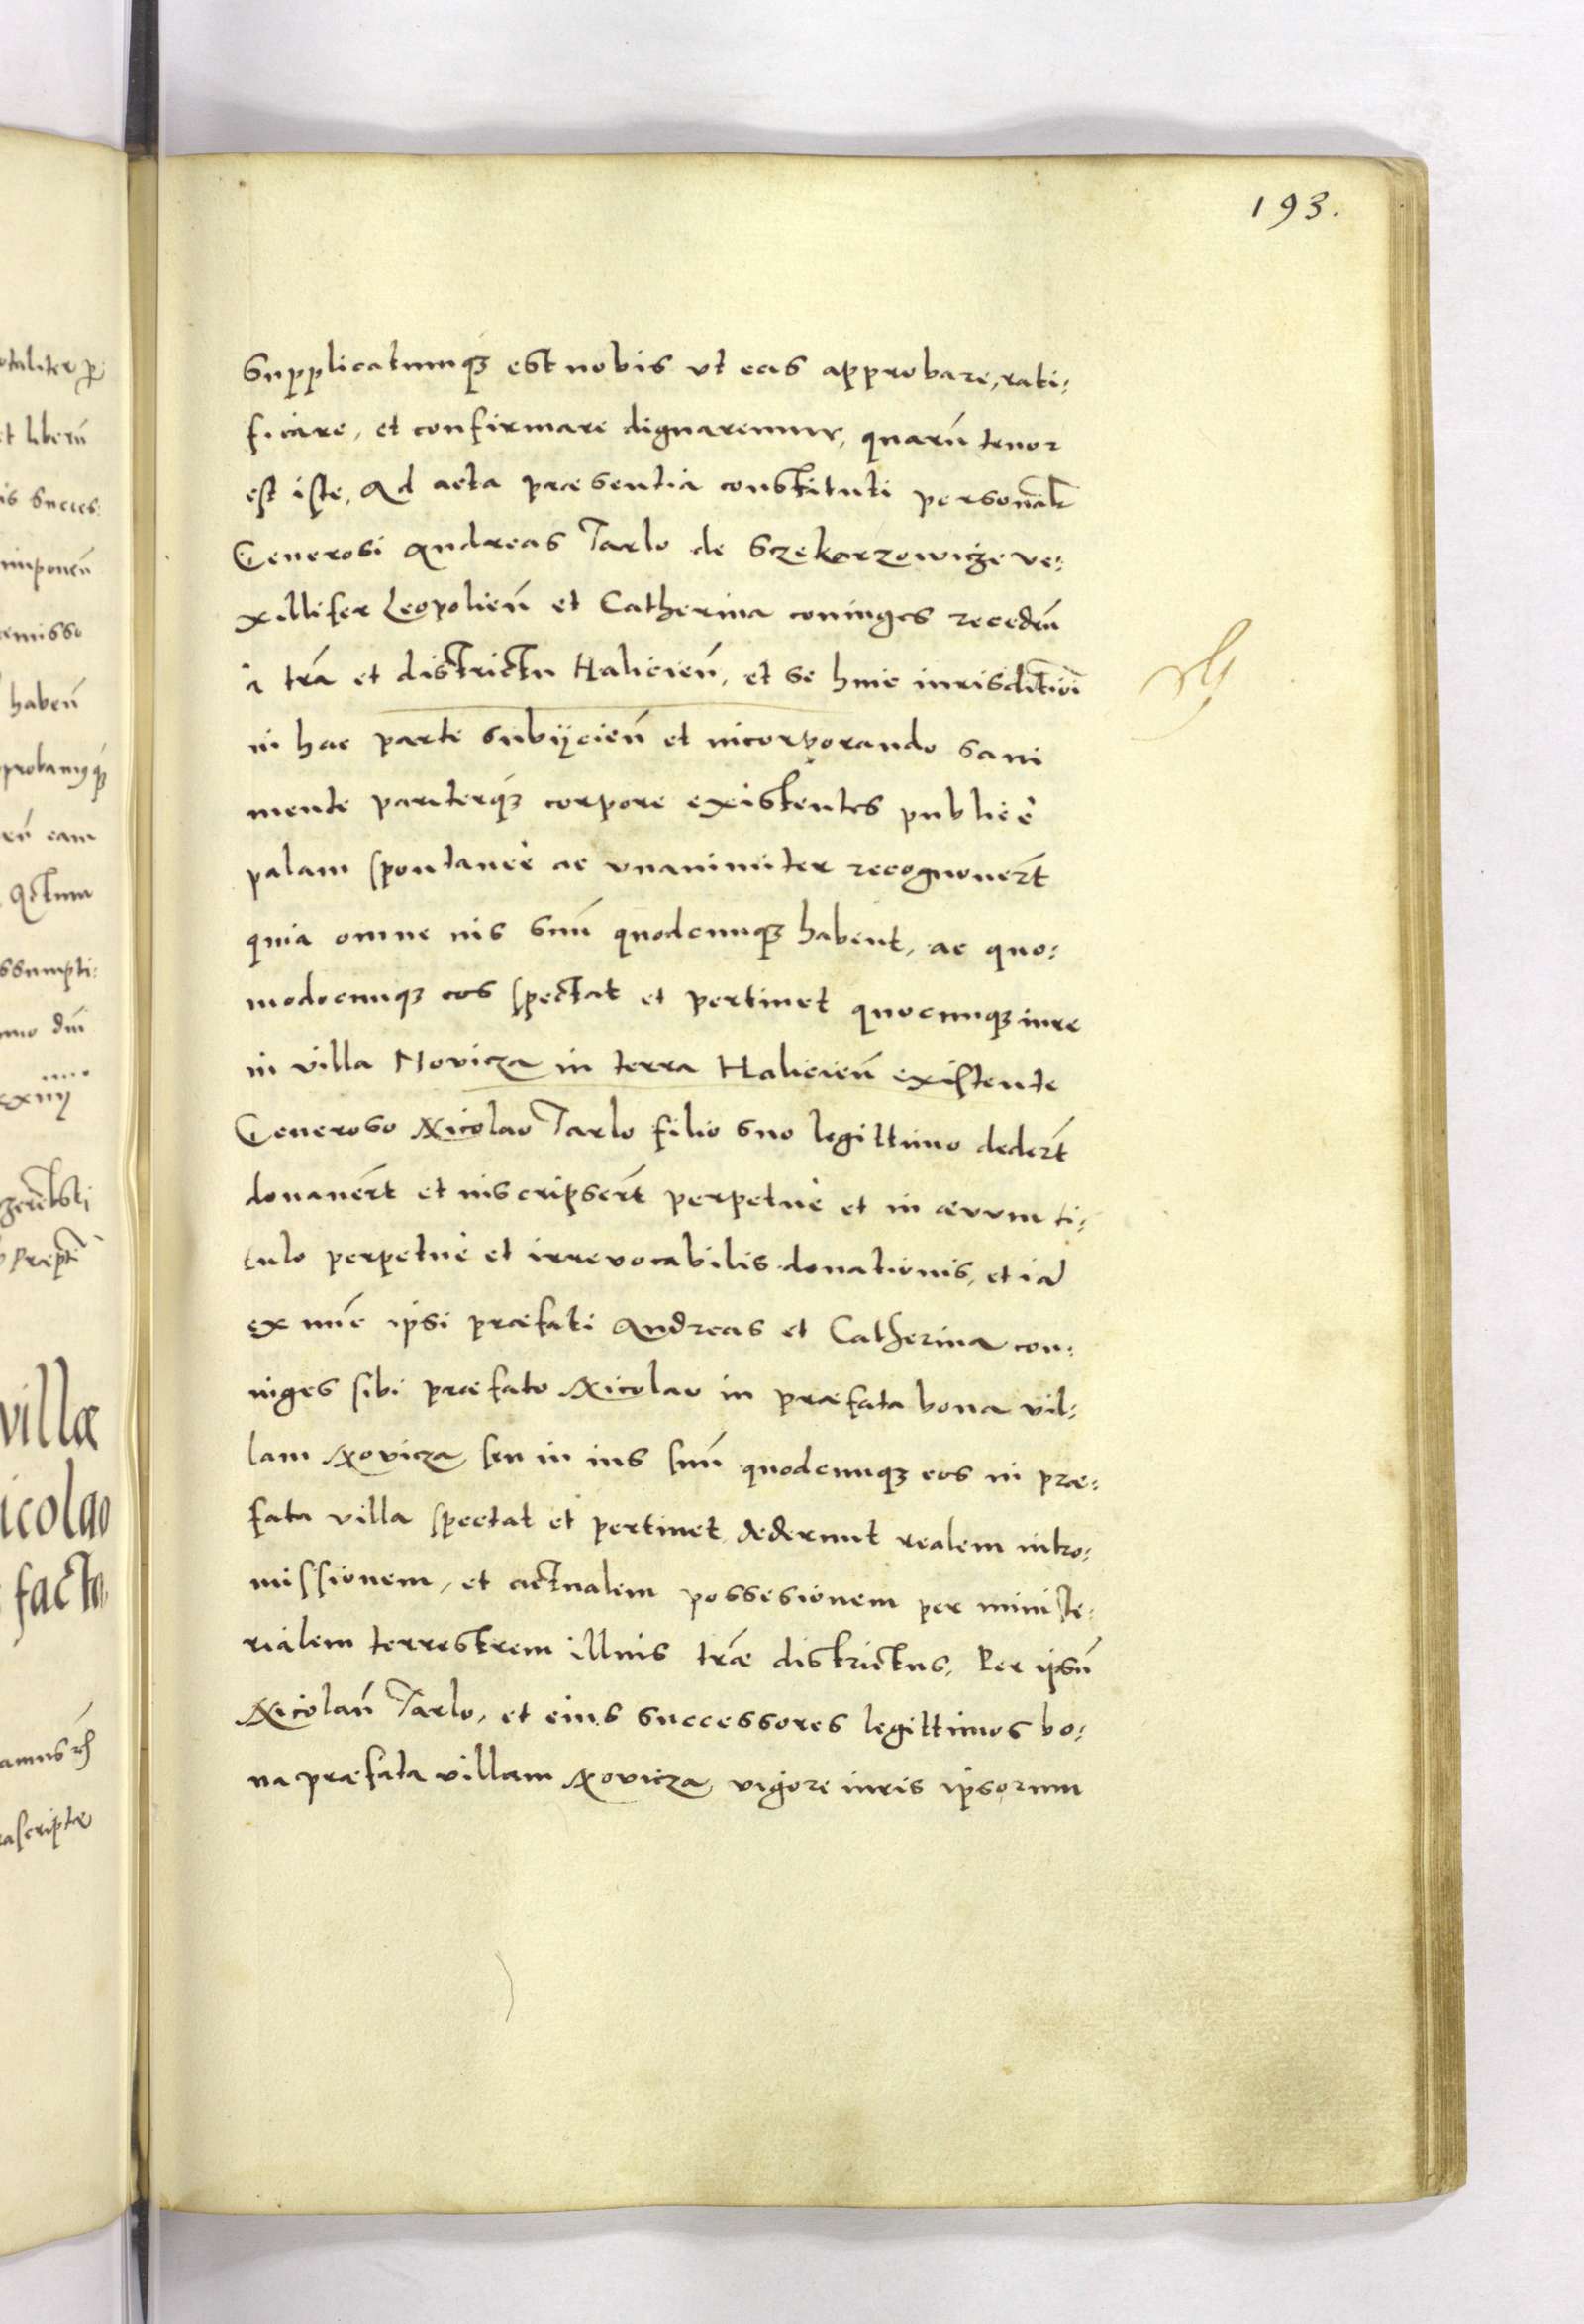 193.
Supplicatumq3 est nobis ut eas approbare, rati:
ficare, et confirmare dignaremur, quarũ tenor
est iste, Ad acta præsentia constituti personalr̃
Generosi Andreas Tarlo de Sczekarzowicze ve:
xillifer Leopolien̄ et Catherina coniuges receden̄
à tr̃a et districtu Halicien̄, et se huic iurisdictioni
in hac parte subÿcien̄ et incorporando sani
mente pariterq3 corpore existentes publicè
palam spontaneè ac unanimiter recognouer̃t
quia omne ius suũ quodcunq3 habent, ac quo:
modocunq3 eos spectat et pertinet quocunq3 iure
in villa Novicza in terra Halicien̄ existente
Generoso Nicolao Tarlo filio suo legittimo deder̃t
donauer̃t et inscripser̃t perpetuè et in ævum ti:
tulo perpetuè et irrevocabilis donationis, et iã
ex nũc ipsi præfati Andreas et Catherina con:
iuges sibi præfato Nicolao in præfata bona vil:
lam Novicza seu in ius suũ quodcunq3 eos in præ:
fata villa spectat et pertinet dederunt realem intro:
missionem, et actualem possesionem per ministe:
rialem terrestrem illius tr̃æ districtus, Per ipsũ
Nicolaũ Tarlo, et eius successores legittimos bo:
na præfata villam Novicza vigore iuris ipsorum
villæ
icolao
facto,